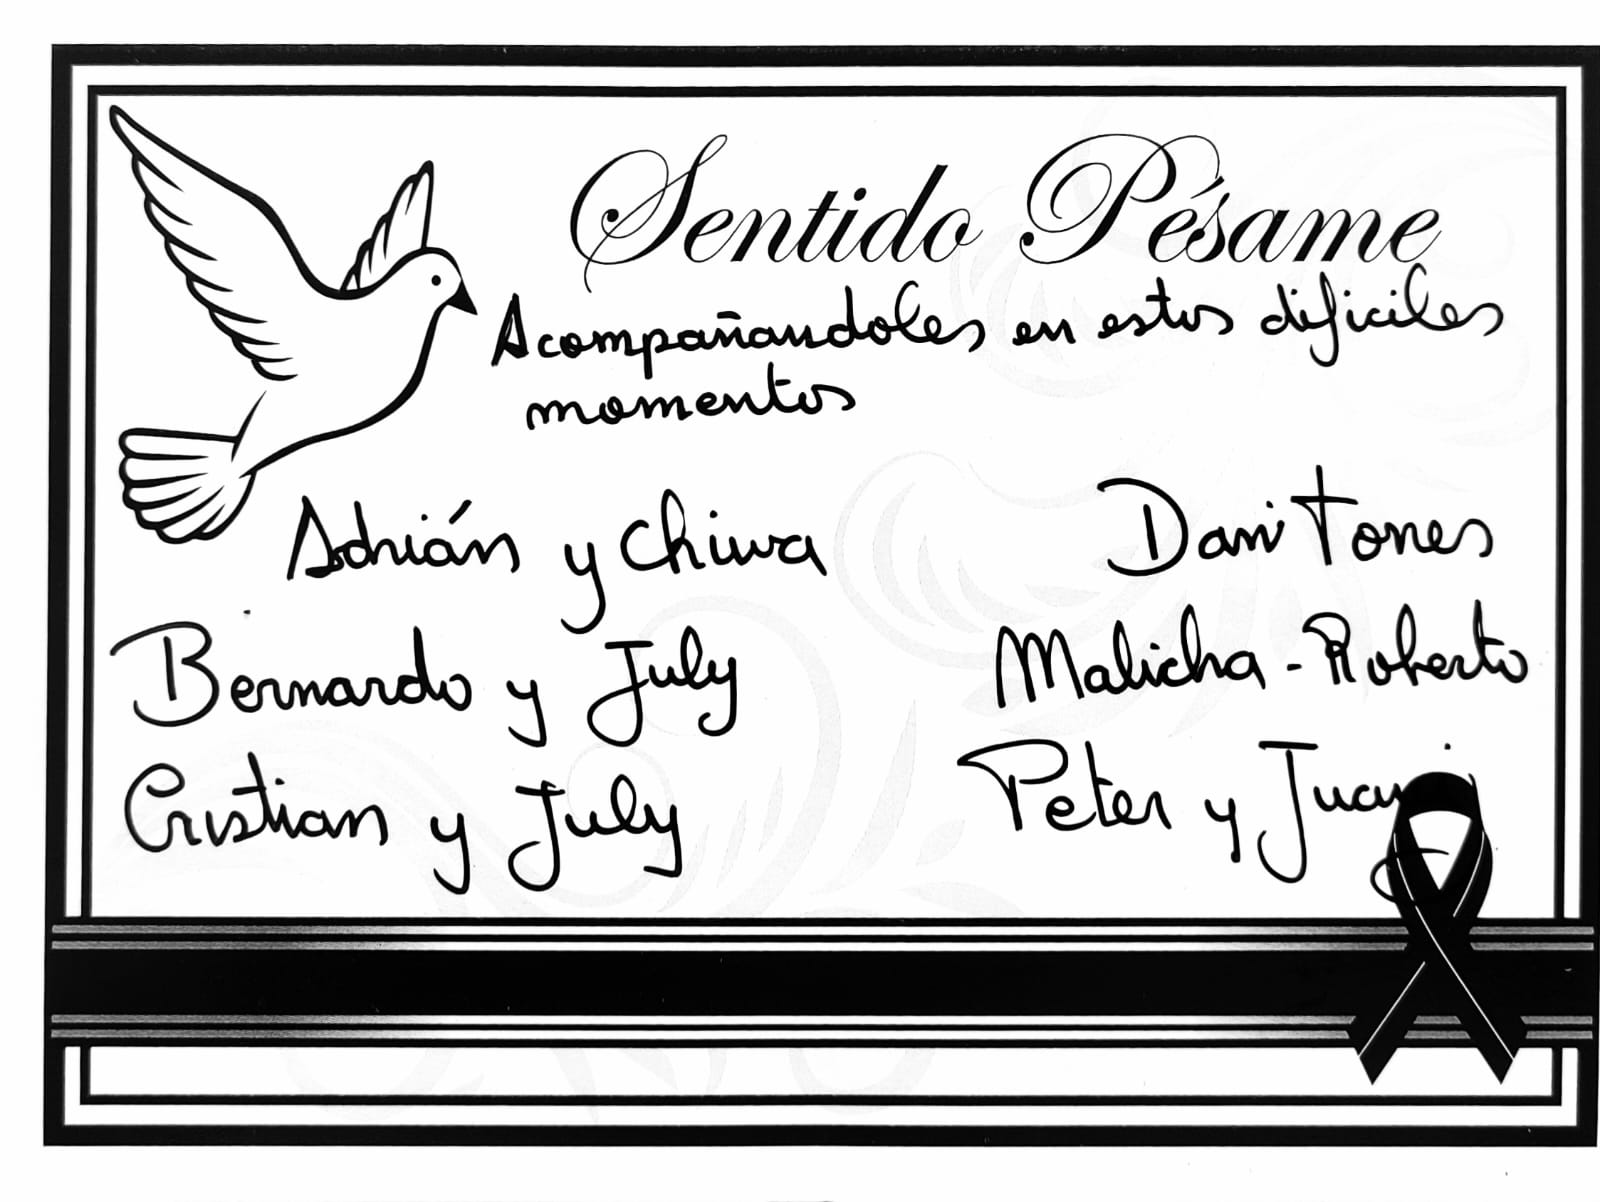 Sentido Pésame
Acompañandoles en estos dificiles
momentos
Adrián y Chiwa
Dani Torres
Bernardo y July
Malicha - Roberto
Cristian y July
Peter y